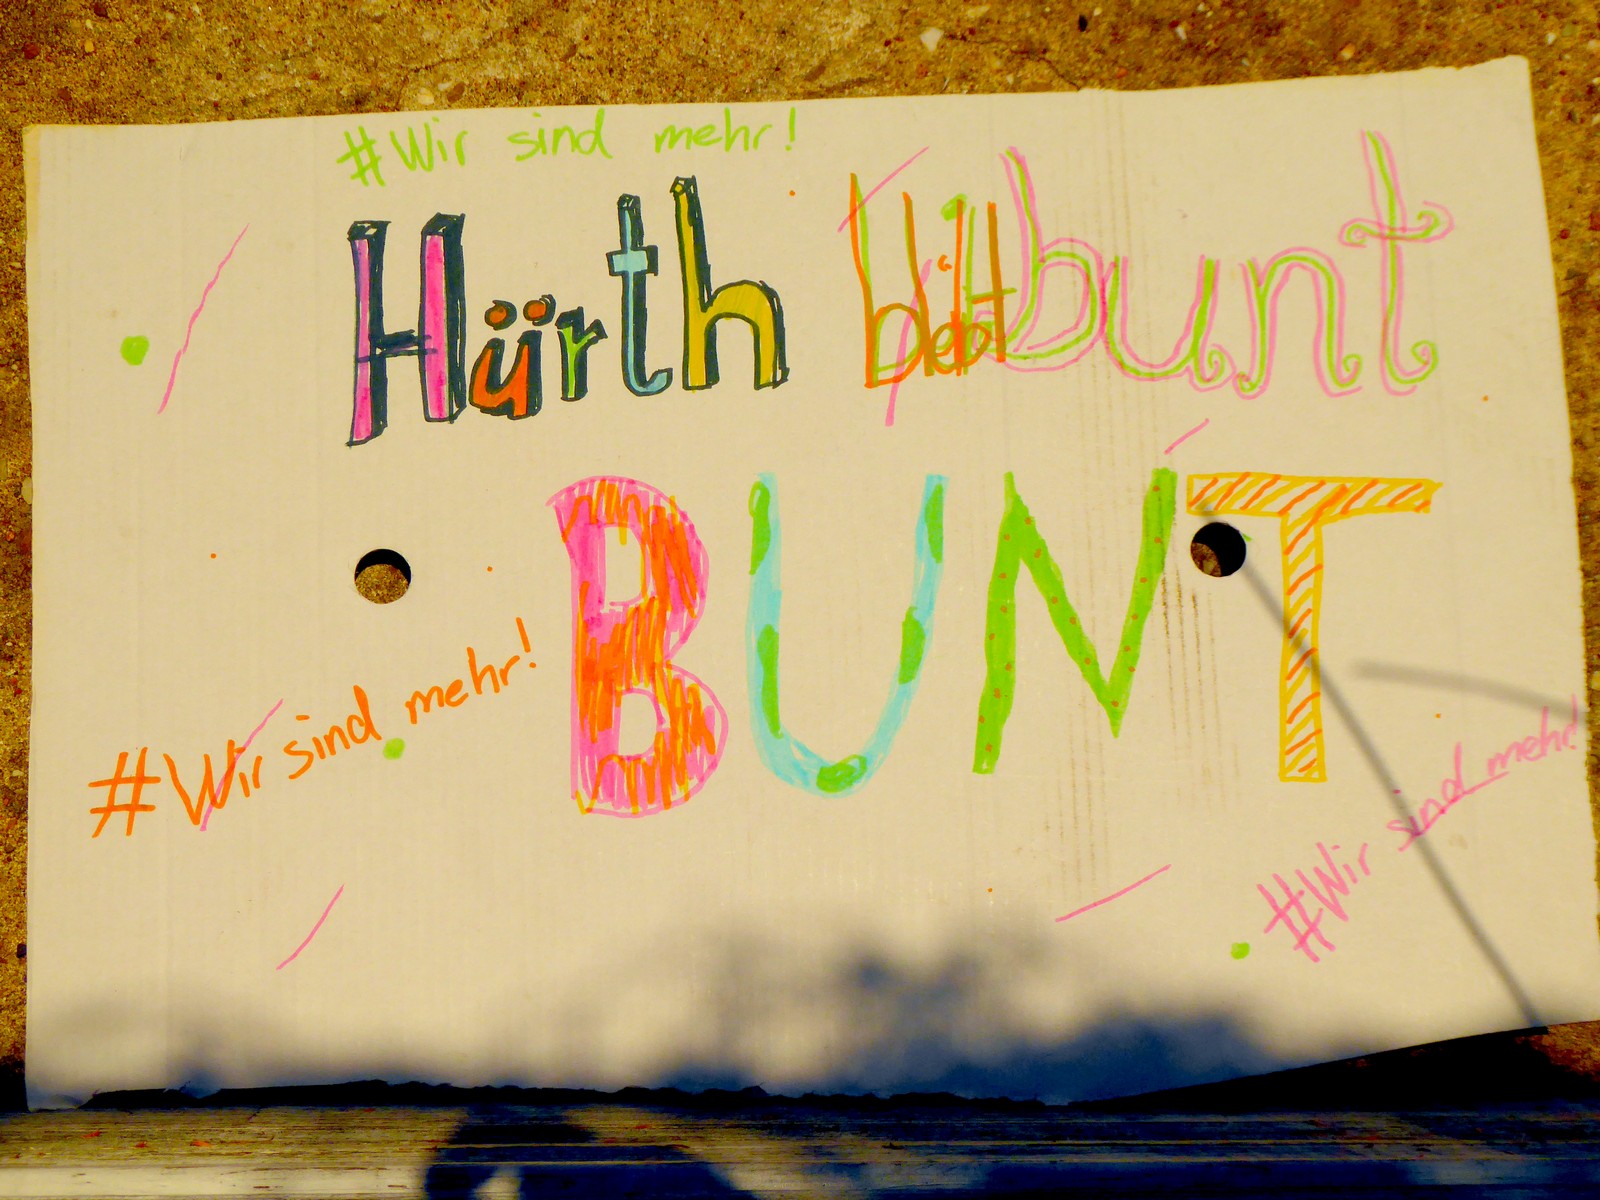 #Wir sind mehr!
Hürth bunt
BUNT
#Wir sind mehr!
#Wir sind mehr!